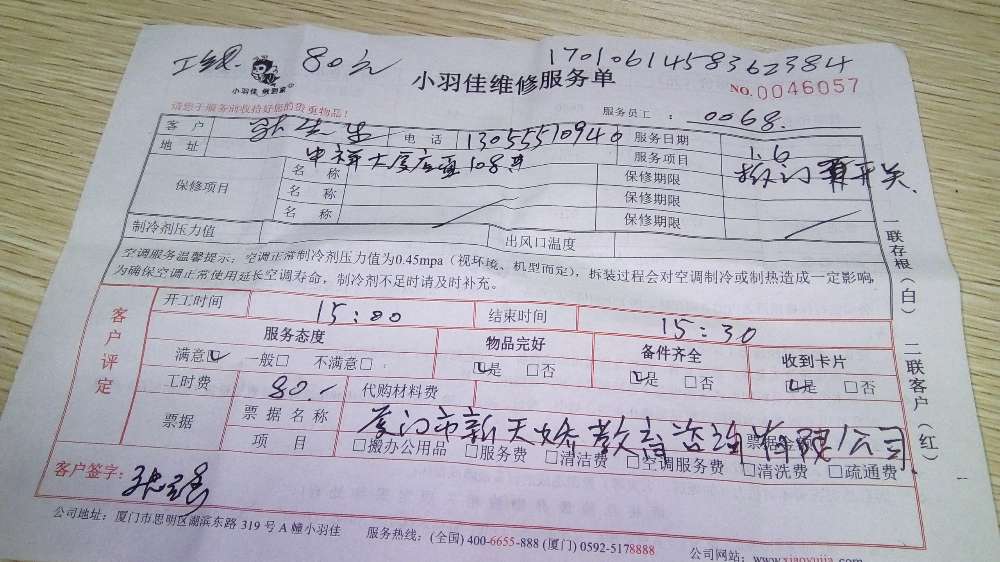 工钱. 80元
17010614583623​84
小羽佳 做到家
小羽佳维修服务单
NO.0046057
请您于服务前收拾好您的贵重物品!
服务员工: 0068.
客户 张先生 电话 13055510940 服务日期 1.6
地址 申祥大厦店面108# 服务项目 拆门 开关
保修项目 名称 保修期限
名称 保修期限
名称 保修期限
制冷剂压力值 出风口温度
空调服务温馨提示:空调正常制冷剂压力值为0.45mpa(视环境、机型而定),拆装过程会对空调制冷或制热造成一定影响,
为确保空调正常使用延长空调寿命,制冷剂不足时请及时补充。
一联存根(白) 二联客户(红)
客户评定
开工时间 15:00 结束时间 15:30
服务态度 物品完好 备件齐全 收到卡片
满意☑ 一般□ 不满意□ ☑是 □否 ☑是 □否 ☑是 □否
工时费 80.- 代购材料费
票据 票据名称 厦门市新天娇教育咨询有限公司 票据金额
项目 □搬办公用品 □服务费 □清洁费 □空调服务费 □清洗费 □疏通费
客户签字: 张强
公司地址:厦门市思明区湖滨东路319号A幢小羽佳 服务热线:(全国)400-6655-888 (厦门)0592-5178888 公司网站:www.xiaoyujia.com